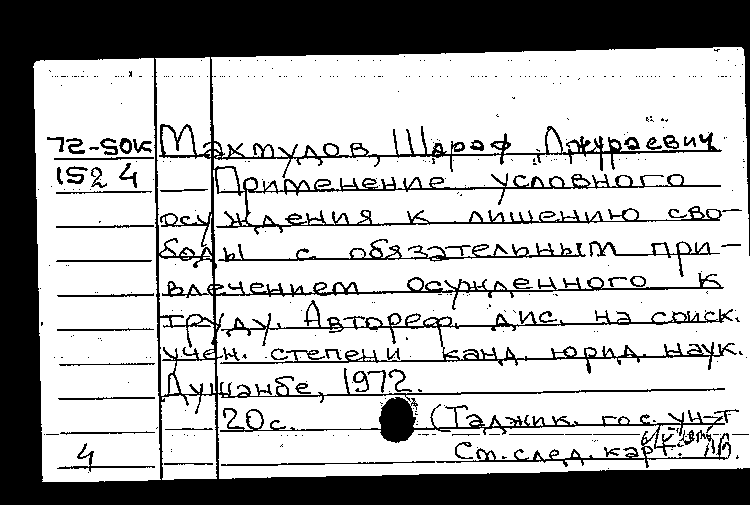 72-50к Махмудов, Шараф Джураевич
1524 Применение условного
осуждения к лишению сво-
боды с обязательным при-
влечением осужденного к
труду. Автореф. дис. на соиск.
учен. степени канд. юрид. наук.
Душанбе, 1972.
20с. (Таджик. гос. ун-т
4 Ст. след. карт. ЛВ.